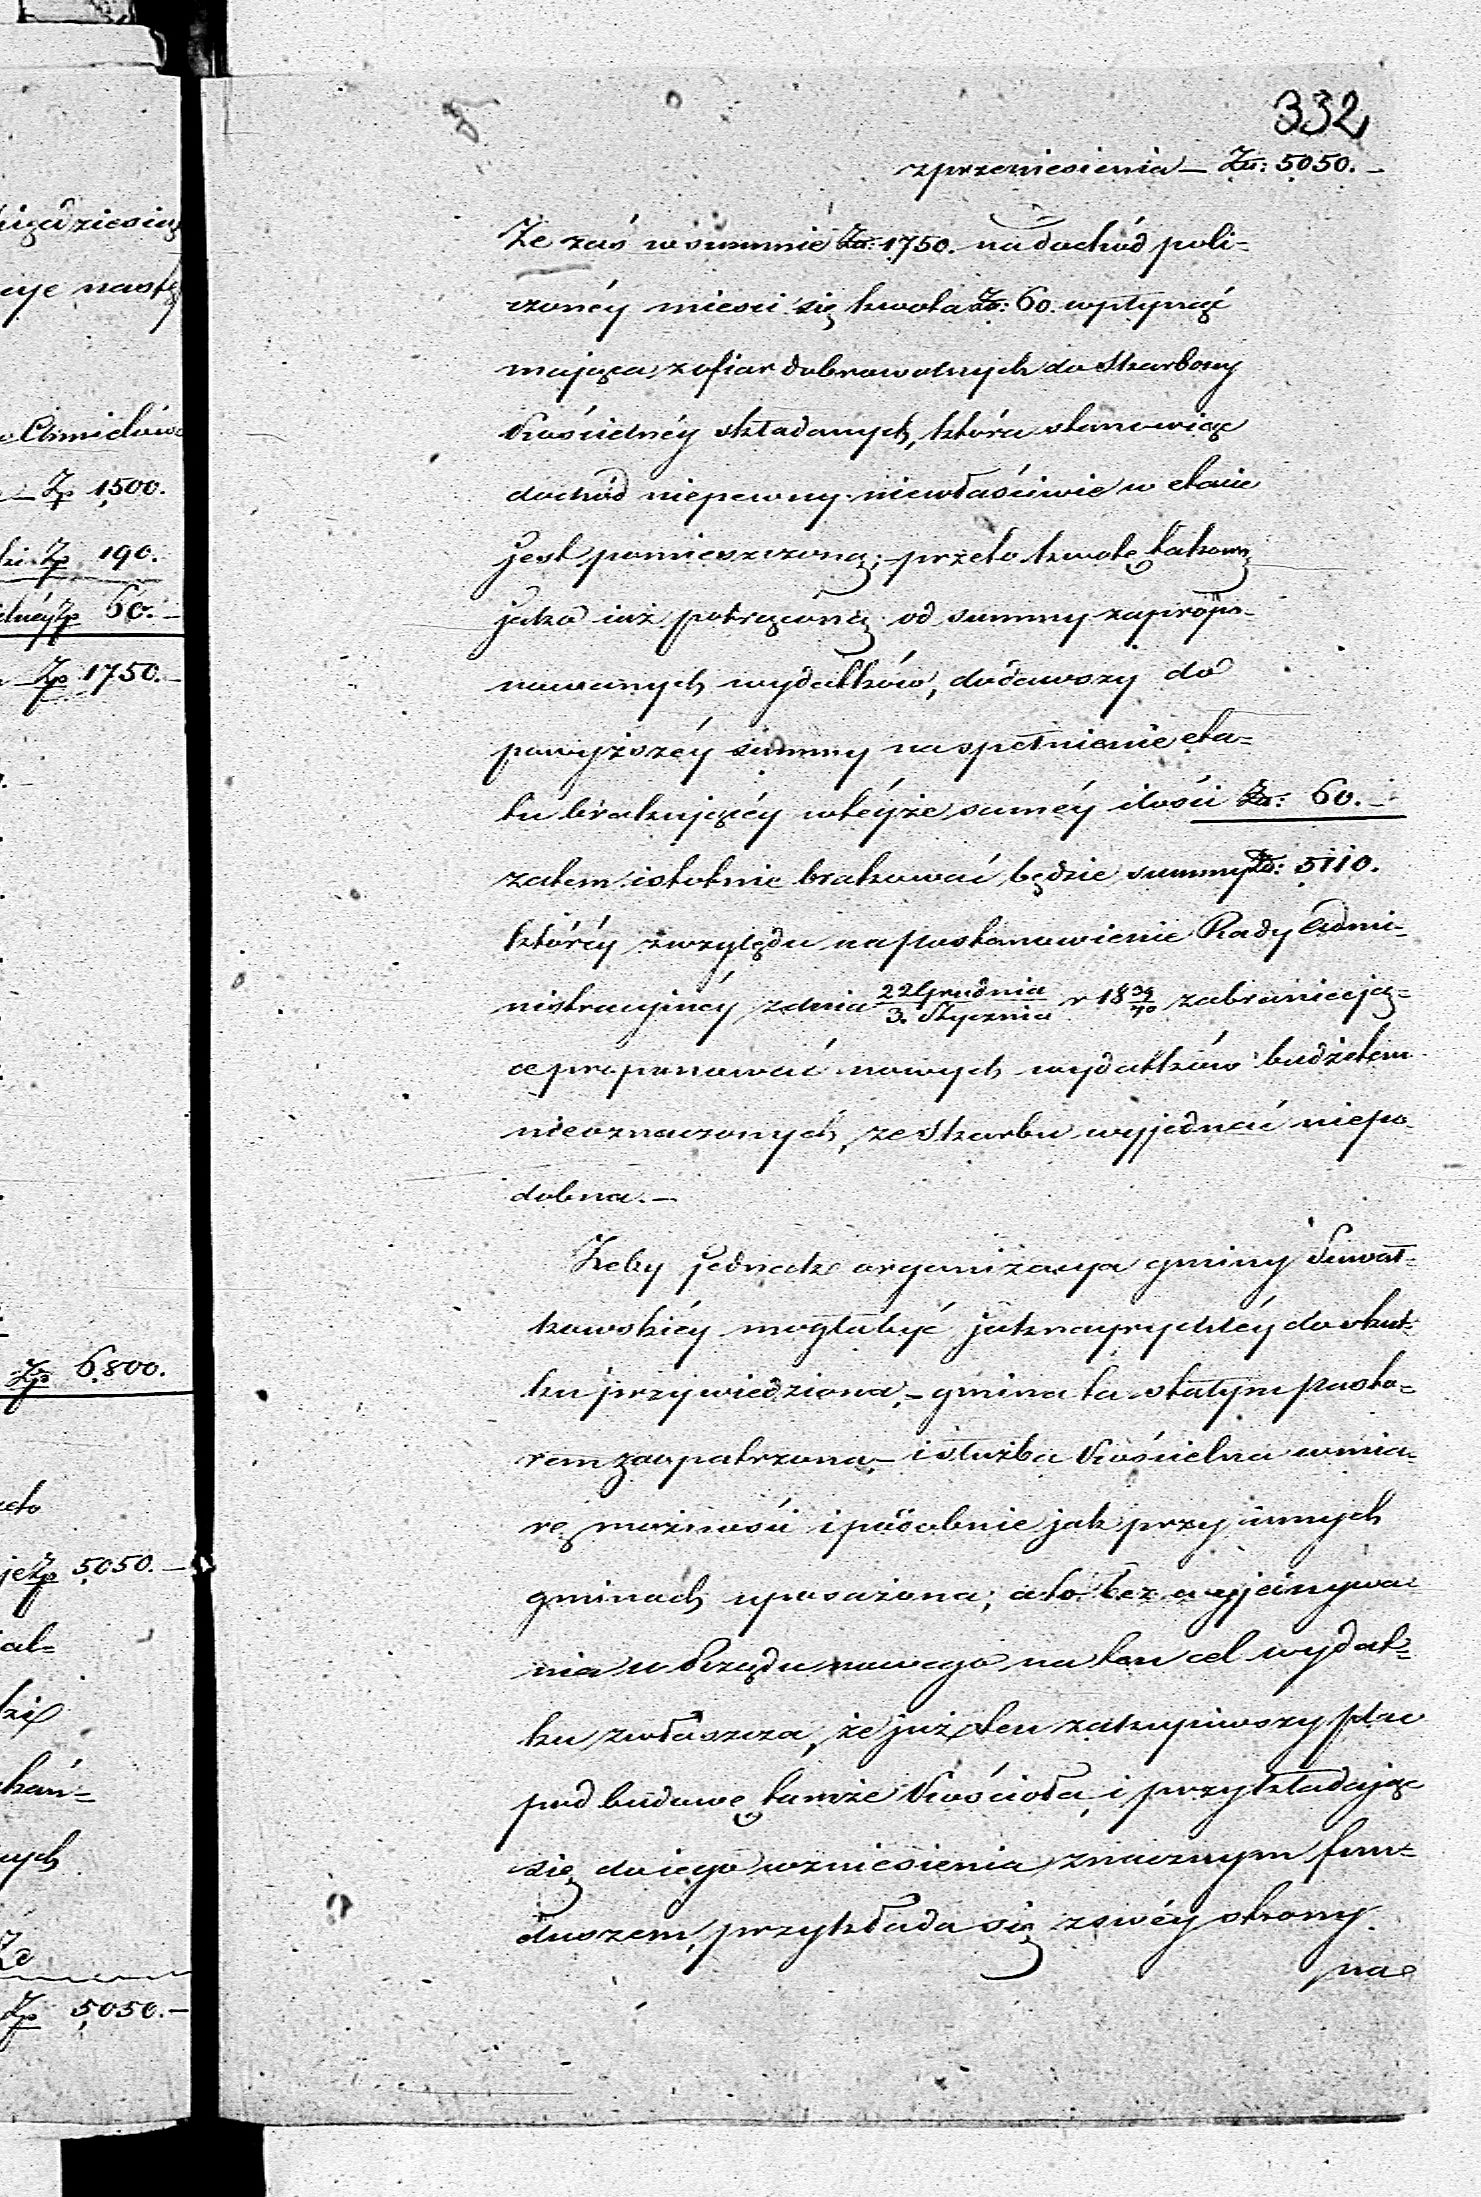 332
z przeniesienia — Zp: 5050. —
Że zaś w summie Zp: 1750. na dochód poli-
czonéy mieści się kwota Zp: 60. wpłynąć
mająca z ofiar dobrowolnych do Skarbony
Kościelnéy składanych, która stanowiąc
dochód niepewny niewłaściwie w etacie
jest pomieszczoną; przeto kwotę takową
jako iuż potrąconą od summy zapropo-
nowanych wydatków, dodawszy do
powyższéy summy na spełnienie eta-
tu brakuiącéy w téyże saméy ilości Zp: 60. —
zatem istotnie brakować będzie summy Zp: 5110.
któréy z względu na postanowienie Rady Admi-
nistracyinéy z dnia 22 Grudnia / 3. Stycznia r 18 39/40 zabraniaiją-
ce proponować nowych wydatków budżetem
nieoznaczonych, ze Skarbu wyjednać niepo-
dobna. —
Żeby jednak organizacya gminy Suwał-
kowskiéy mogła być jaknayrychléy do skut-
ku przywiedziona, — gmina ta stałym pasto-
rem zaopatrzona, — i służba Kościelna w mia-
rę możności i podobnie jak przy innych
gminach uposażona; a to bez wyjednywa
nia u Rządu nowego na ten cel wydat-
ku zwłaszcza, że już ten zakupiwszy plac
pod budowę tamże Kościoła i przykładając
się do iego wzniesienia znacznym fun-
duszem, przykłada się z swéy strony
na
ięćdziesiąt
cye nastę
Chmielów
— Zp 1500.
ki Zp 190.
elnéy Zp 60. —
— Zp 1750. —
Zp 6800.
je Zp 5050. —
al-
kań-
ych
Że
Zp 5050. —